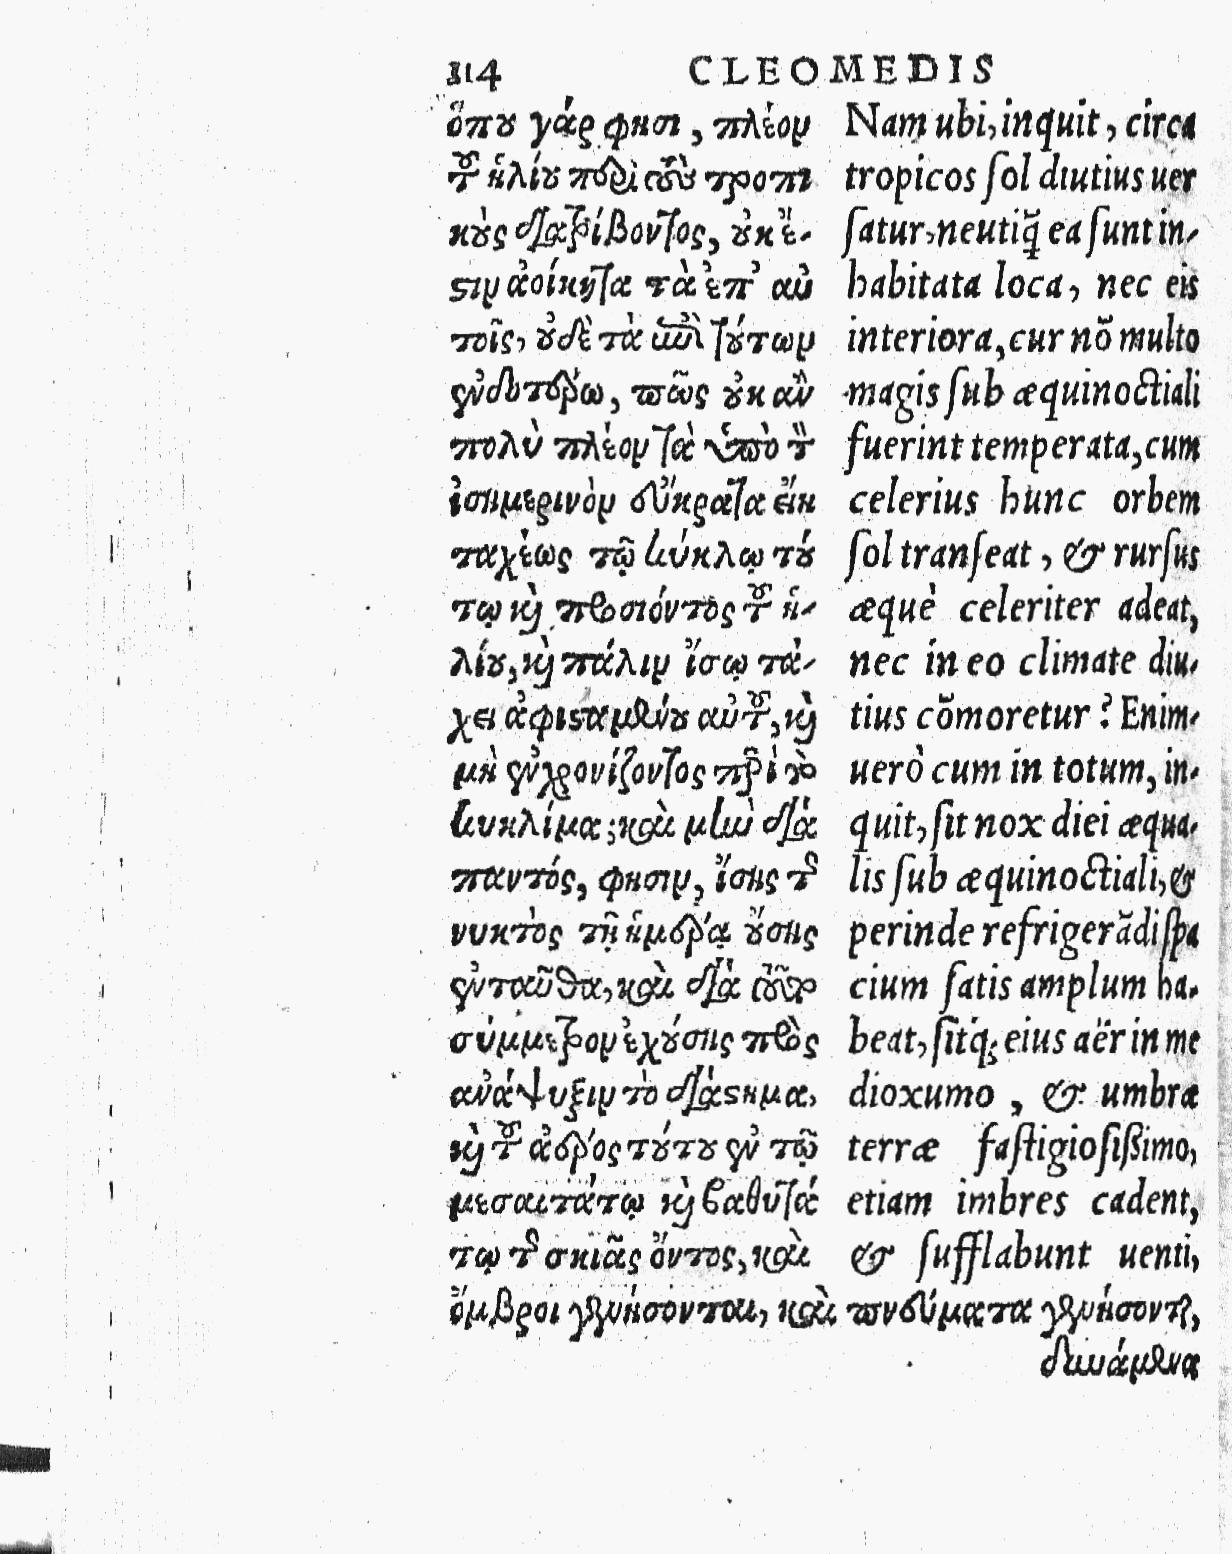 114 CLEOMEDIS
ὅπου γάρ φησι, πλέον
τοῦ ἡλίου περὶ τοὺς τροπι
κοὺς διατρίβοντος, οὐκ ἔ-
στιν ἀοίκητα τὰ ἐπ' αὐ
τοῖς, οὐδὲ τὰ ἐπὶ τούτων
ἐνδοτέρω, πῶς οὐκ ἂν
πολὺ πλέον τὰ ὑπὸ τὸν
ἰσημερινὸν εὔκρατα εἴη
ταχέως τῷ κύκλῳ τού
τῳ καὶ προσιόντος τοῦ ἡ-
λίου, καὶ πάλιν ἴσῳ τά-
χει ἀφισταμένου αὐτοῦ, καὶ
μὴ ἐγχρονίζοντος περὶ τὸ
κλίμα; καὶ μὴν διὰ
παντός, φησιν, ἴσης τῆς
νυκτὸς τῇ ἡμέρᾳ οὔσης
ἐνταῦθα, καὶ διὰ τοῦτο
σύμμετρον ἐχούσης πρὸς
ἀνάψυξιν τὸ διάστημα,
καὶ τοῦ ἀέρος τούτου ἐν τῷ
μεσαιτάτῳ καὶ βαθυτά
τῳ τῆς σκιᾶς ὄντος, καὶ
ὄμβροι γενήσονται, καὶ πνεύματα γενήσονται,
δυνάμενα
Nam ubi, inquit, circa
tropicos sol diutius uer
satur, neutiq̃ ea sunt in-
habitata loca, nec eis
interiora, cur nõ multo
magis sub æquinoctiali
fuerint temperata, cum
celerius hunc orbem
sol transeat, & rursus
æquè celeriter adeat,
nec in eo climate diu-
tius cõmoretur? Enim-
uerò cum in totum, in-
quit, sit nox diei æqua-
lis sub æquinoctiali, &
perinde refrigerãdi spa
cium satis amplum ha-
beat, sitq́; eius aër in me
dioxumo, & umbræ
terræ fastigiosissimo,
etiam imbres cadent,
& sufflabunt uenti,